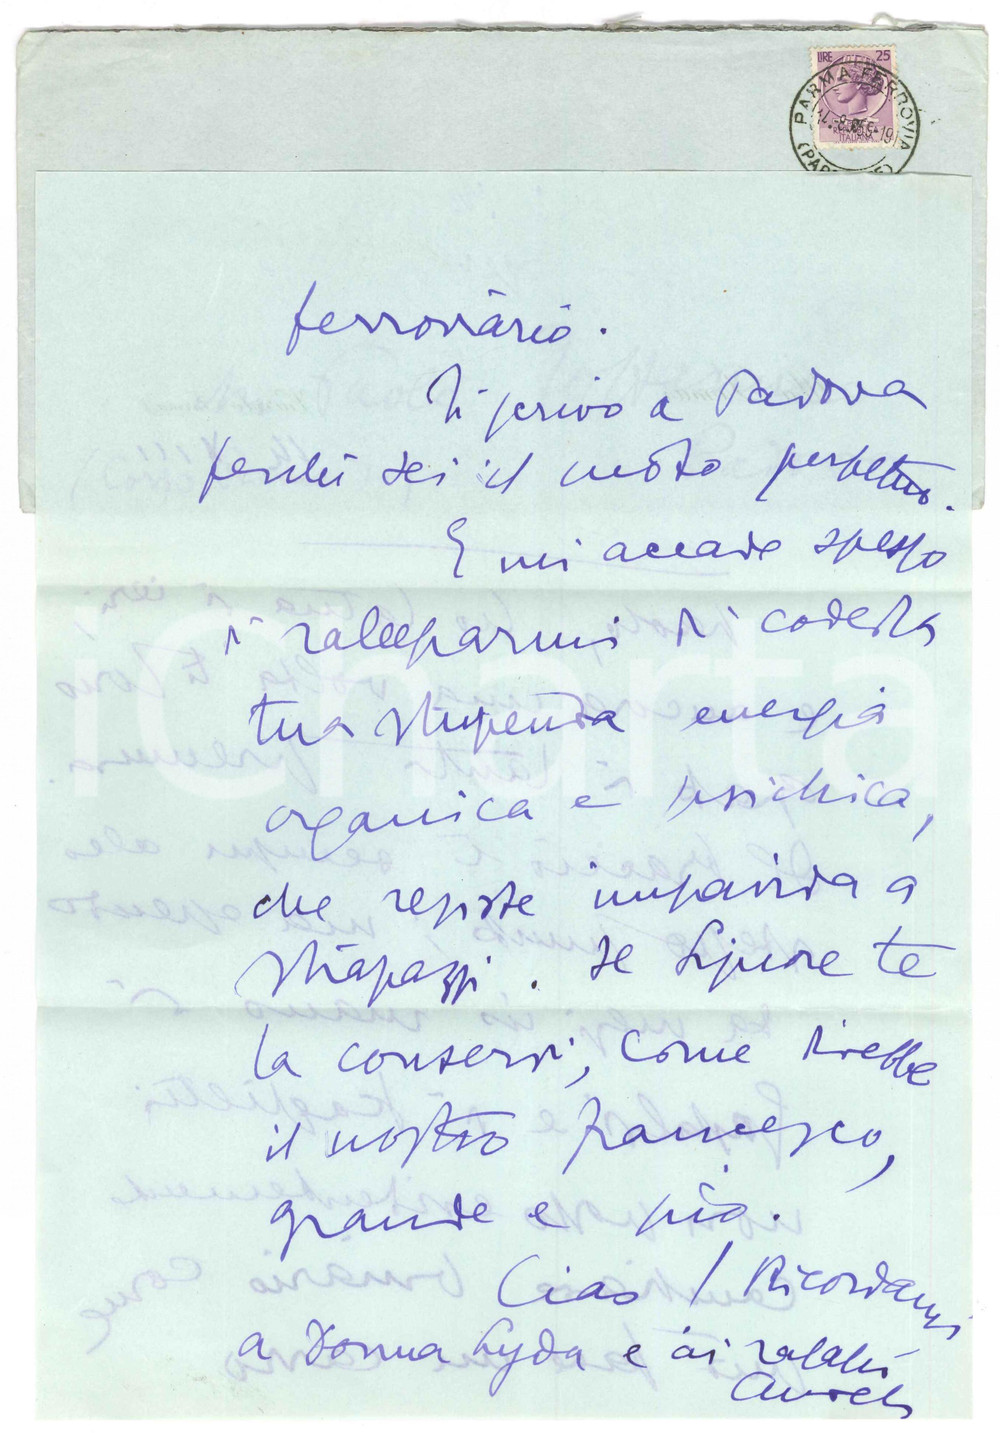 LIRE 25
PARMA FERROVIA
ITALIANA
ferroviario.
Ti scrivo a Padova
perché sei il moto perpetuo.
E mi accade spesso
di rallegrarmi di codesta
tua stupenda energia
organica e psichica,
che resiste impavida a
strapazzi. Il Signore te
la conservi, come direbbe
il nostro Francesco,
grande e pio.
Ciao / Ricordami
a Donna Lyda e ai
iCharta